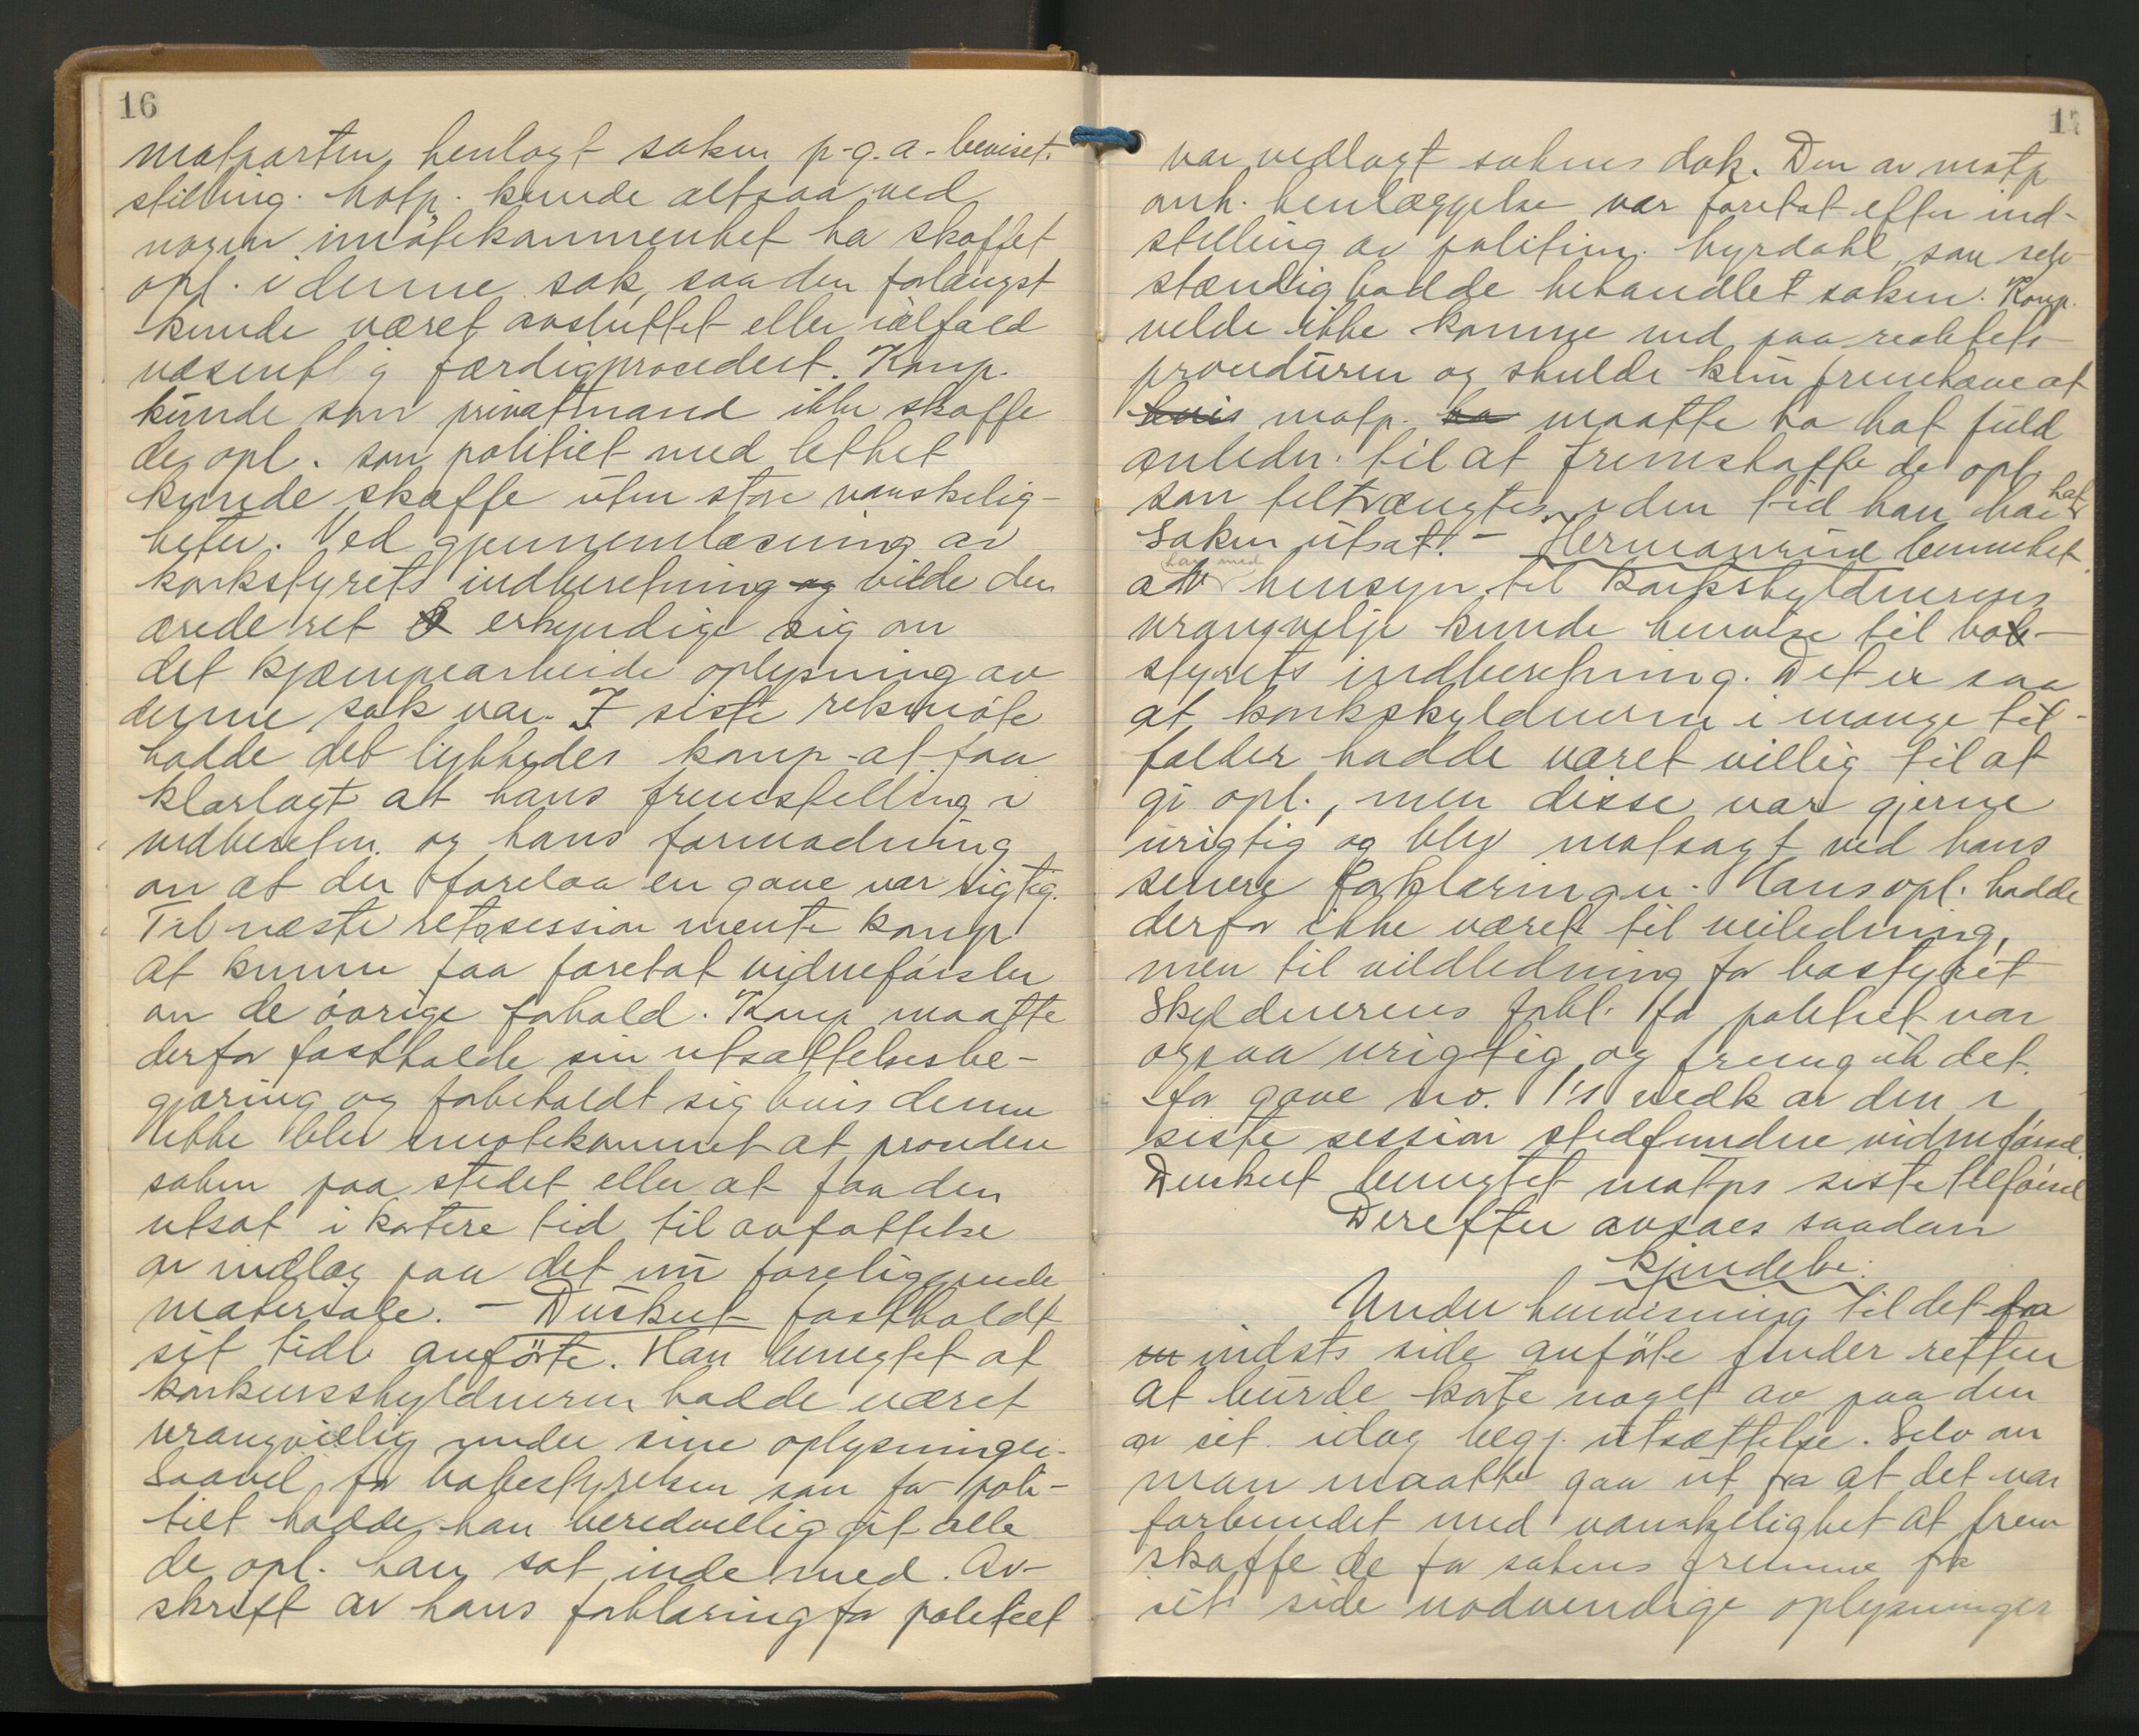 16
motparten, henlagt saken p.g.a. beviset.
stilling. Motp. kunde altsaa ved
nogen imøtekommenhet ha skaffet
opl. i denne sak, saa den forlængst
kunde været avsluttet eller ialfald
væsentlig færdigprocedert. Komp.
kunde som privatmand ikke skaffe
de opl. som politiet med lethet
kunde skaffe uten store vanskelig-
heter. Ved gjennemlæsning av
konkstyrets indberetning og vilde den
ærede ret erkyndige sig om
det kjæmpearbeide oplysning av
denne sak var. I siste retsmøte
hadde det lykkedes komp. at faa
klarlagt at hans fremstilling i
indberetn. og hans formodning
om at der forelaa en gave var rigtig.
Til næste retssession mente komp.
at kunne faa foretat vidneførsler
om de øvrige forhold. Komp maatte
derfor fastholde sin utsættelsesbe-
gjæring og forbeholdt sig hvis denne
ikke blev imøtekommet at procedere
saken paa stedet eller at faa den
utsat i kortere tid til avfattelse
av indlæg paa det nu foreliggende
materiale. - Duskeet fastholdt
sit tidl. anførte. Han benegtet at
konkursskyldneren hadde været
vrangvillig under sine oplysninger.
Saavel for bobestyrelsen som for poli-
tiet hadde han beredvillig git alle
de opl. han sat inde med. Av-
skrift av hans forklaring for politiet
17
var vedlagt sakens dok. Den av motp
anh. henlæggelse var foretat efter ind-
stilling av politiin. Myrdahl, som selv-
stændig hadde behandlet saken. Komp.
vilde ikke komme ind paa realitets-
proceduren og skulde kun fremhæve at
hvis motp. ha maatte ha hat fuld
anledn. til at fremskaffe de opl.
som tiltrængtes i den tid han har hat
saken utsat. - Hermanrud bemerket
at med hensyn til konkskyldnerens
vrangvilje kunde henvise til bo-
styrets indberetning. Det er saa
at konkskyldneren i mange til-
fælder hadde været villig til at
gi opl., men disse var gjerne
urigtig og blev motsagt ved hans
senere forklaringer. Hans opl. hadde
derfor ikke været til veiledning,
men til vildledning for bostyret
Skyldnerens forkl. for politiet var
ogsaa urigtig, og fremgik det
for gave no. 1's vedk av den i
siste session stedfundne vidneførsel.
Duskeet benegtet motps siste tilførsel
Derefter avsaes saadan
kjendelse:
Under henvisning til det fra
indsts side anførte finder retten
at burde korte noget av paa den
av sit. idag begj. utsættelse. Selv om
man maatte gaa ut fra at det var
forbundet med vanskelighet at frem
skaffe de for sakens fremme fra
sit. side nødvendige oplysninger